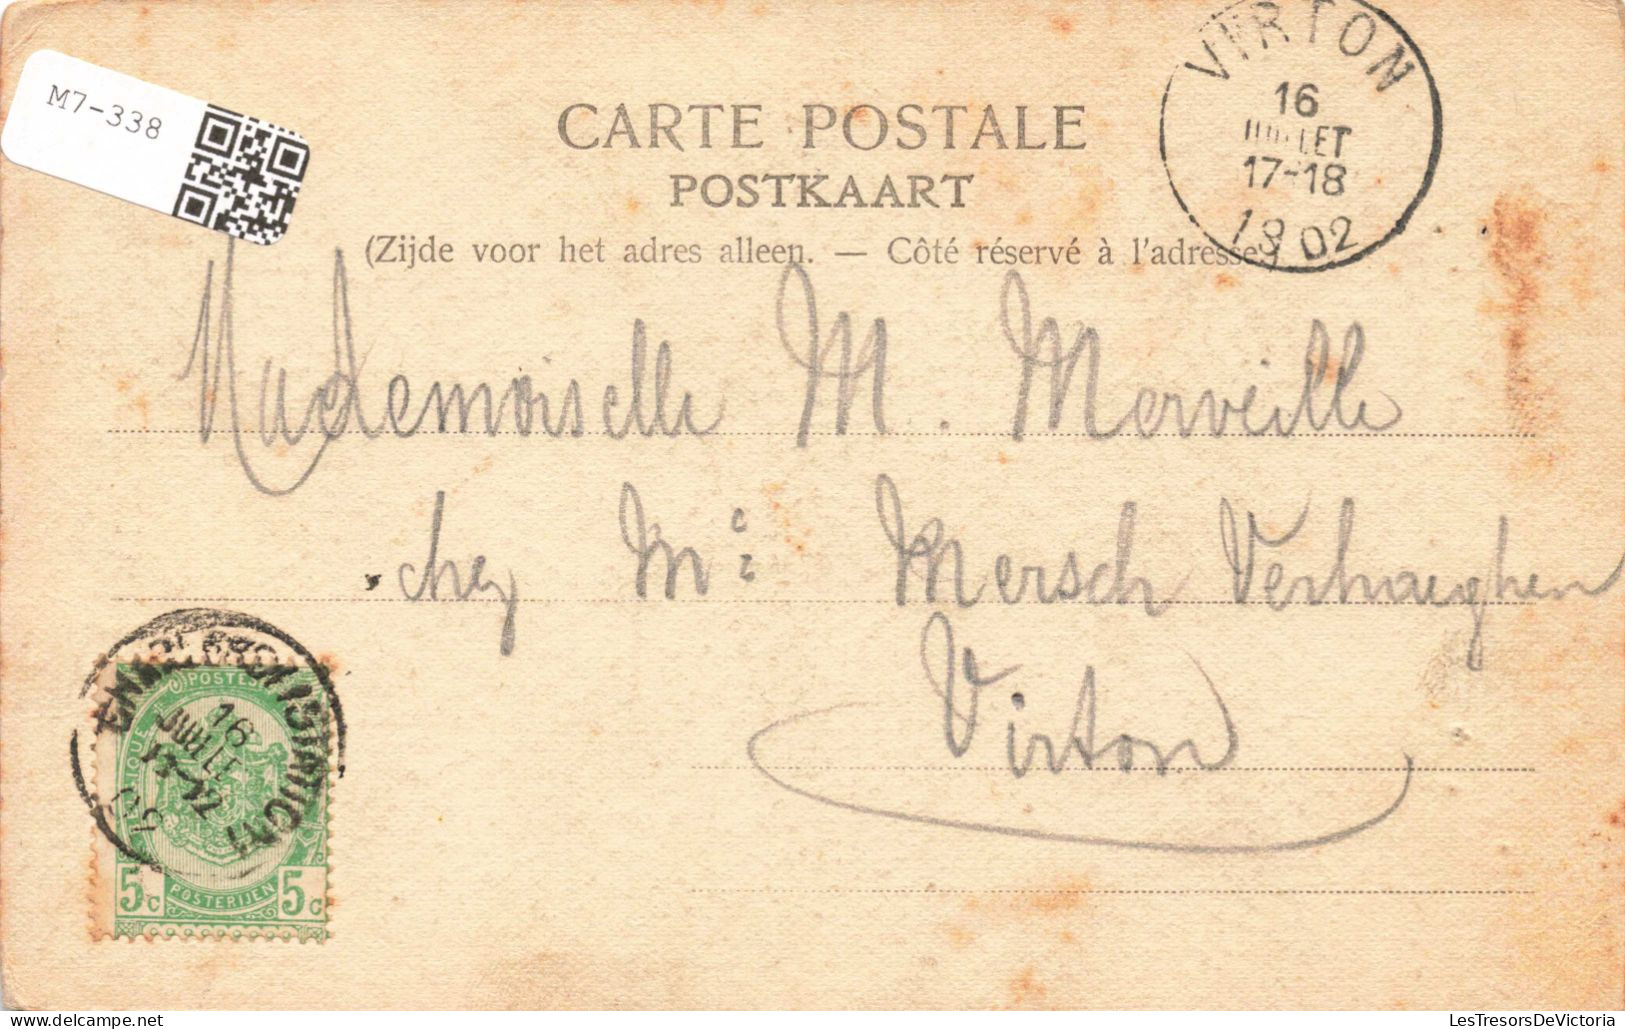 M7-338
VIRTON
16
JUILLET
17-18
1902
CARTE POSTALE
POSTKAART
(Zijde voor het adres alleen. — Côté réservé à l'adresse.)
Mademoiselle M. Merveille
chez Mr Mersch Verhaeghen
Virton
POSTES
16
JUILLE
5c POSTERIJEN 5c
LesTresorsDeVictoria